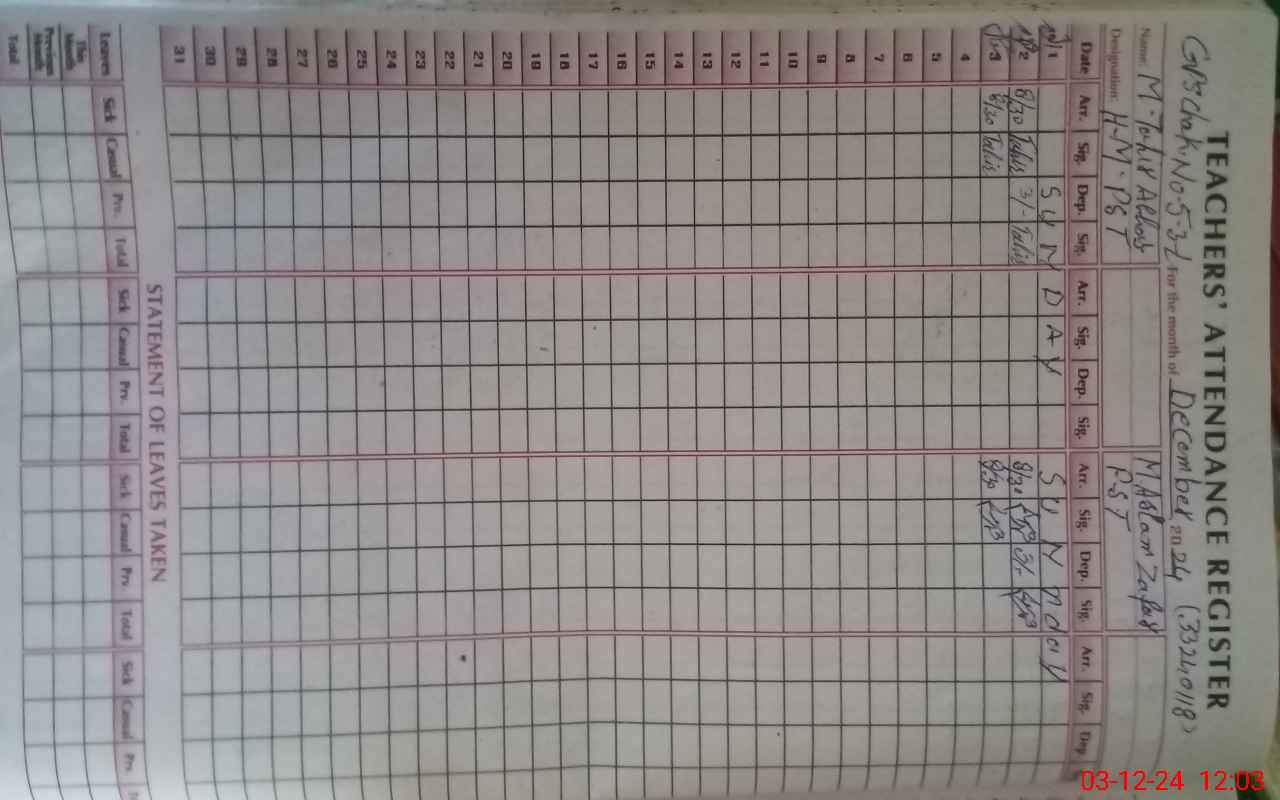 TEACHERS' ATTENDANCE REGISTER
GPS Chak No. 5-3-L For the month of December 2024 (33240118)
Name: M. Tahir Abbas M. Aslam Zafar
Designation: H-M. PST PST
Date Arr. Sig. Dep. Sig. Arr. Sig. Dep. Sig. Arr. Sig. Dep. Sig. Arr. Sig. Dep.
1 SUNDAY SUNnday
2 8/30 Tahir 3/- Tahir 8/30 3/-
3 8/30 Tahir 8/30
4
5
6
7
8
9
10
11
12
13
14
15
16
17
18
19
20
21
22
23
24
25
26
27
28
29
30
31
STATEMENT OF LEAVES TAKEN
Leaves Sick Casual Prv. Total Sick Casual Prv. Total Sick Casual Prv. Total Sick Casual Prv.
This Month
Previous Month
Total
03-12-24 12:03